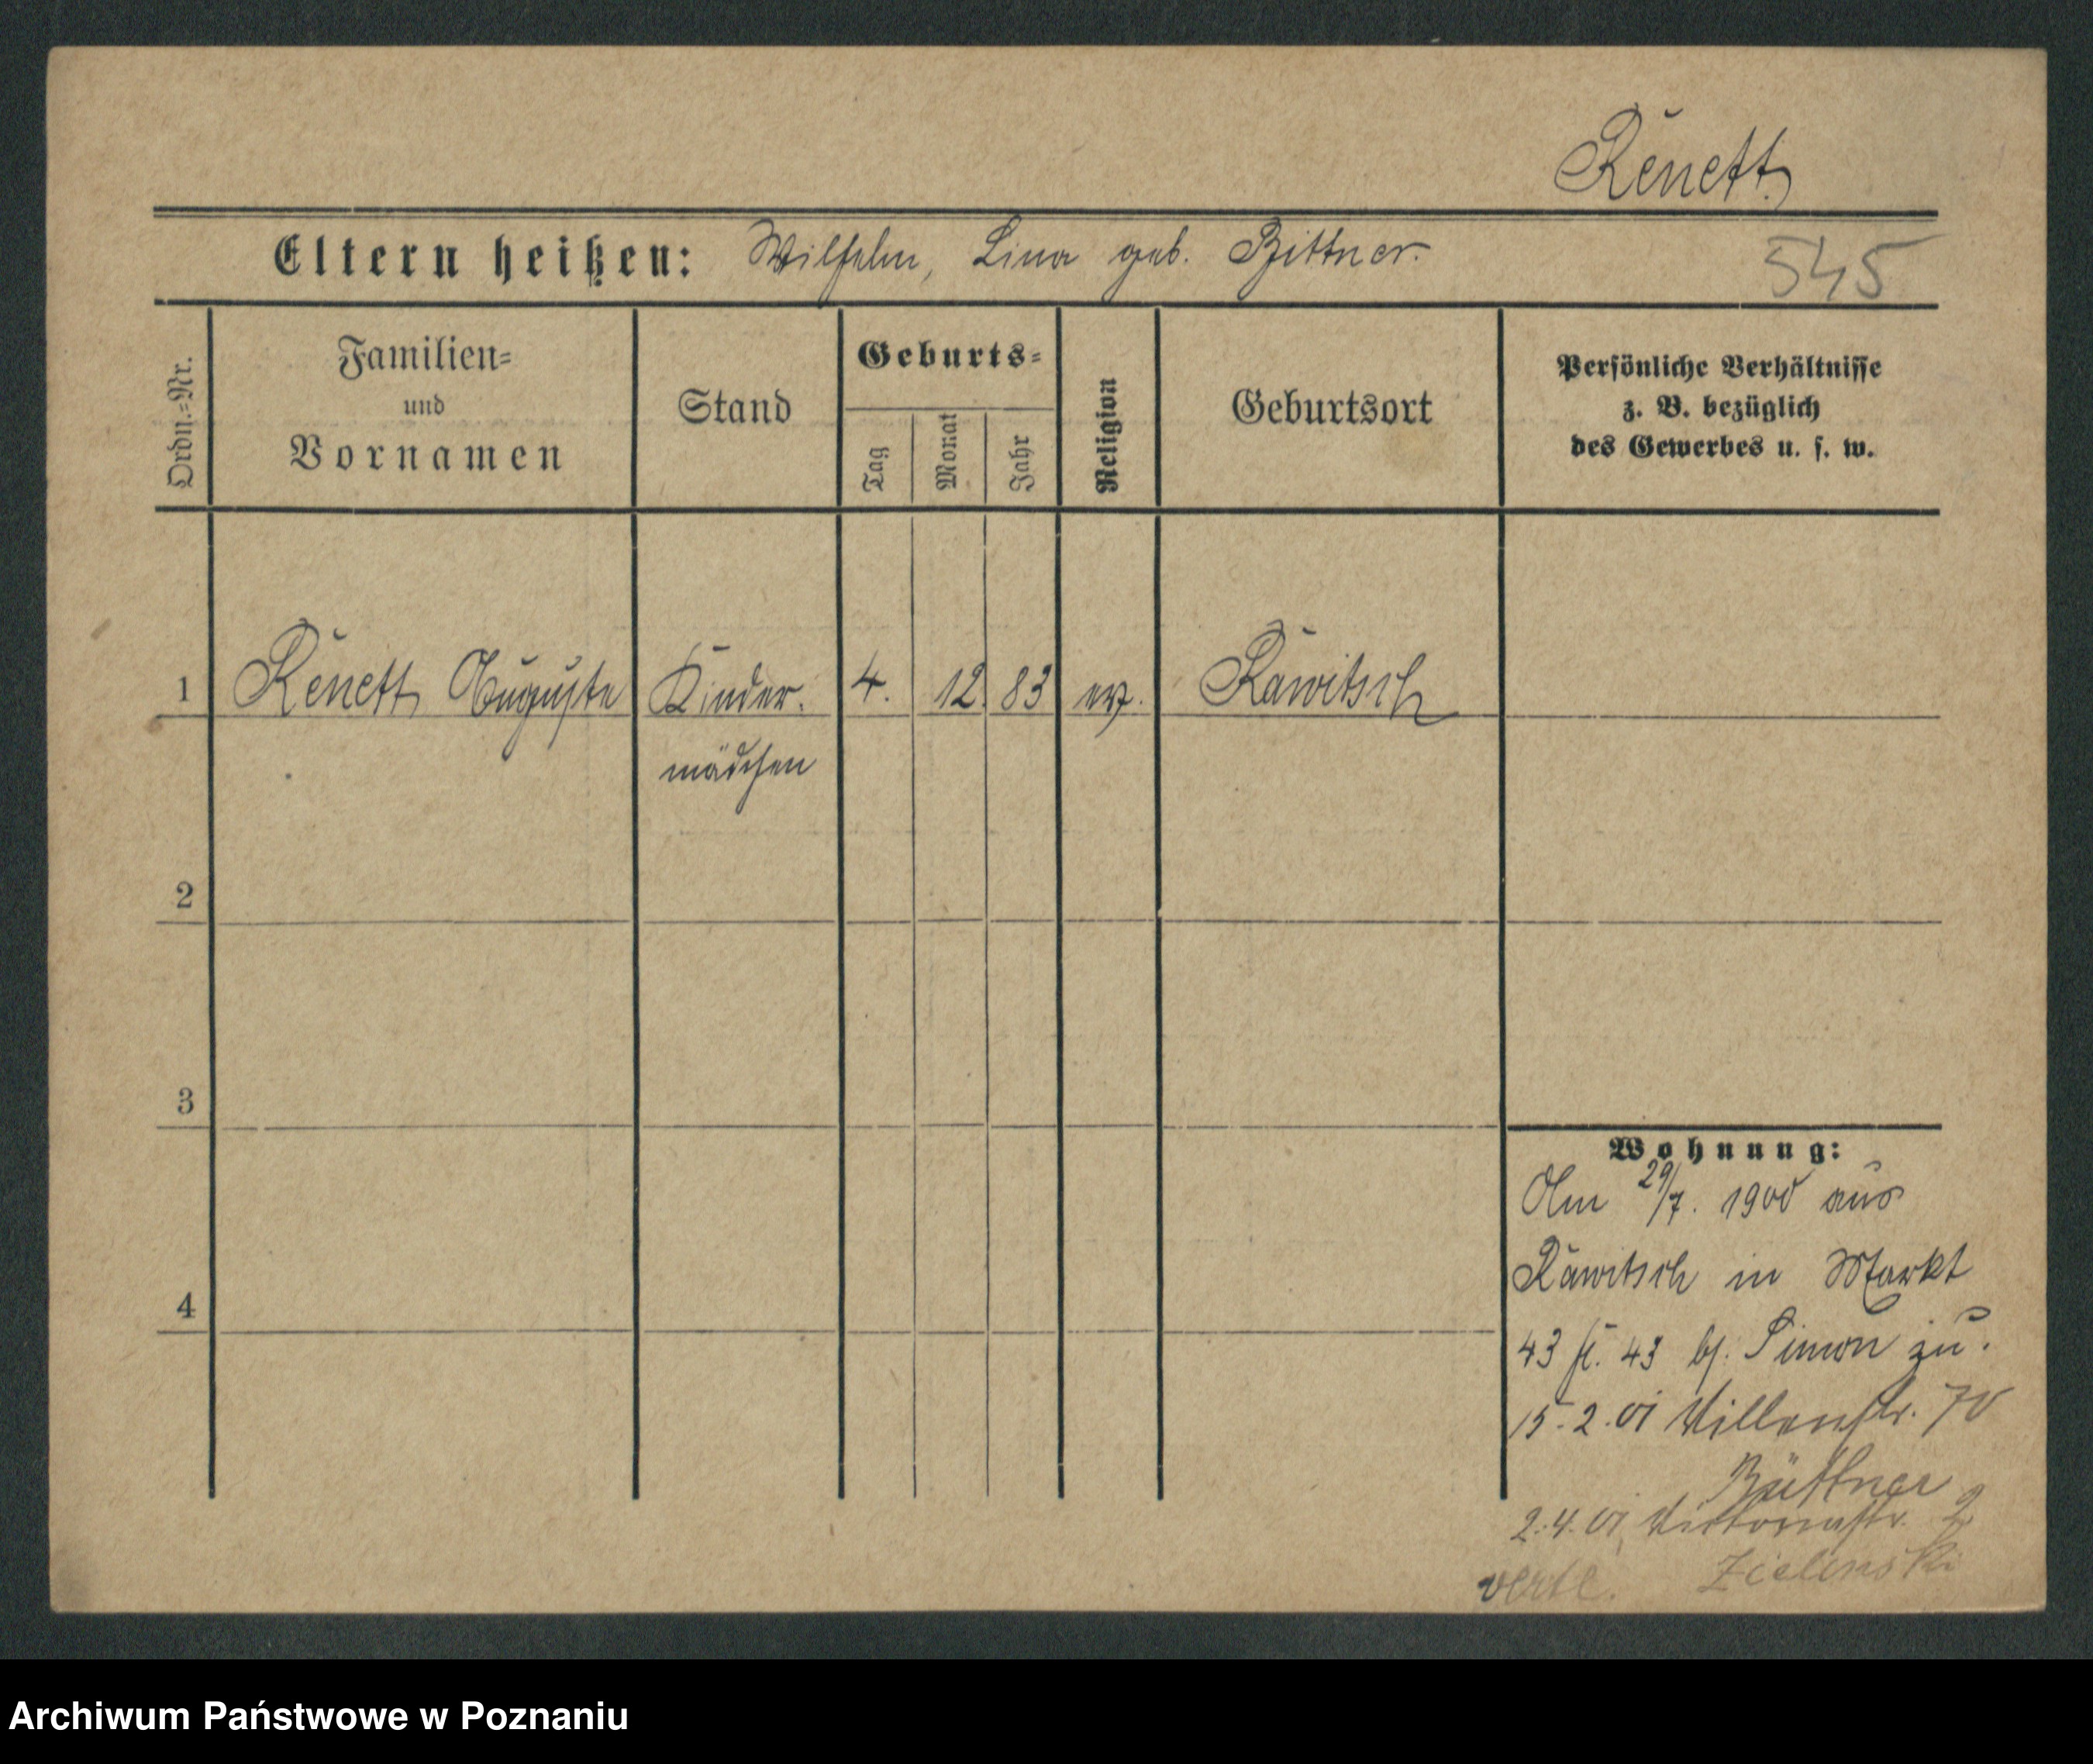 Renett
Eltern heißen: Wilhelm, Lina geb. Bittner.
545
Ordn.=Nr.
Familien=
und
Vornamen
Stand
Geburts=
Tag
Monat
Jahr
Religion
Geburtsort
Persönliche Verhältnisse
z. B. bezüglich
des Gewerbes u. s. w.
1 Renett Auguste Kinder. 4. 12. 83 ev. Rawitsch
mädchen
2
3
4
Wohnung:
Am 29/7. 1900 aus
Rawitsch in Markt
43 43 b/. Simon zu.
15.2.01 Villenstr. 70
Büttner
2.4.01 Victoriastr. 2
Zielinski
Archiwum Państwowe w Poznaniu